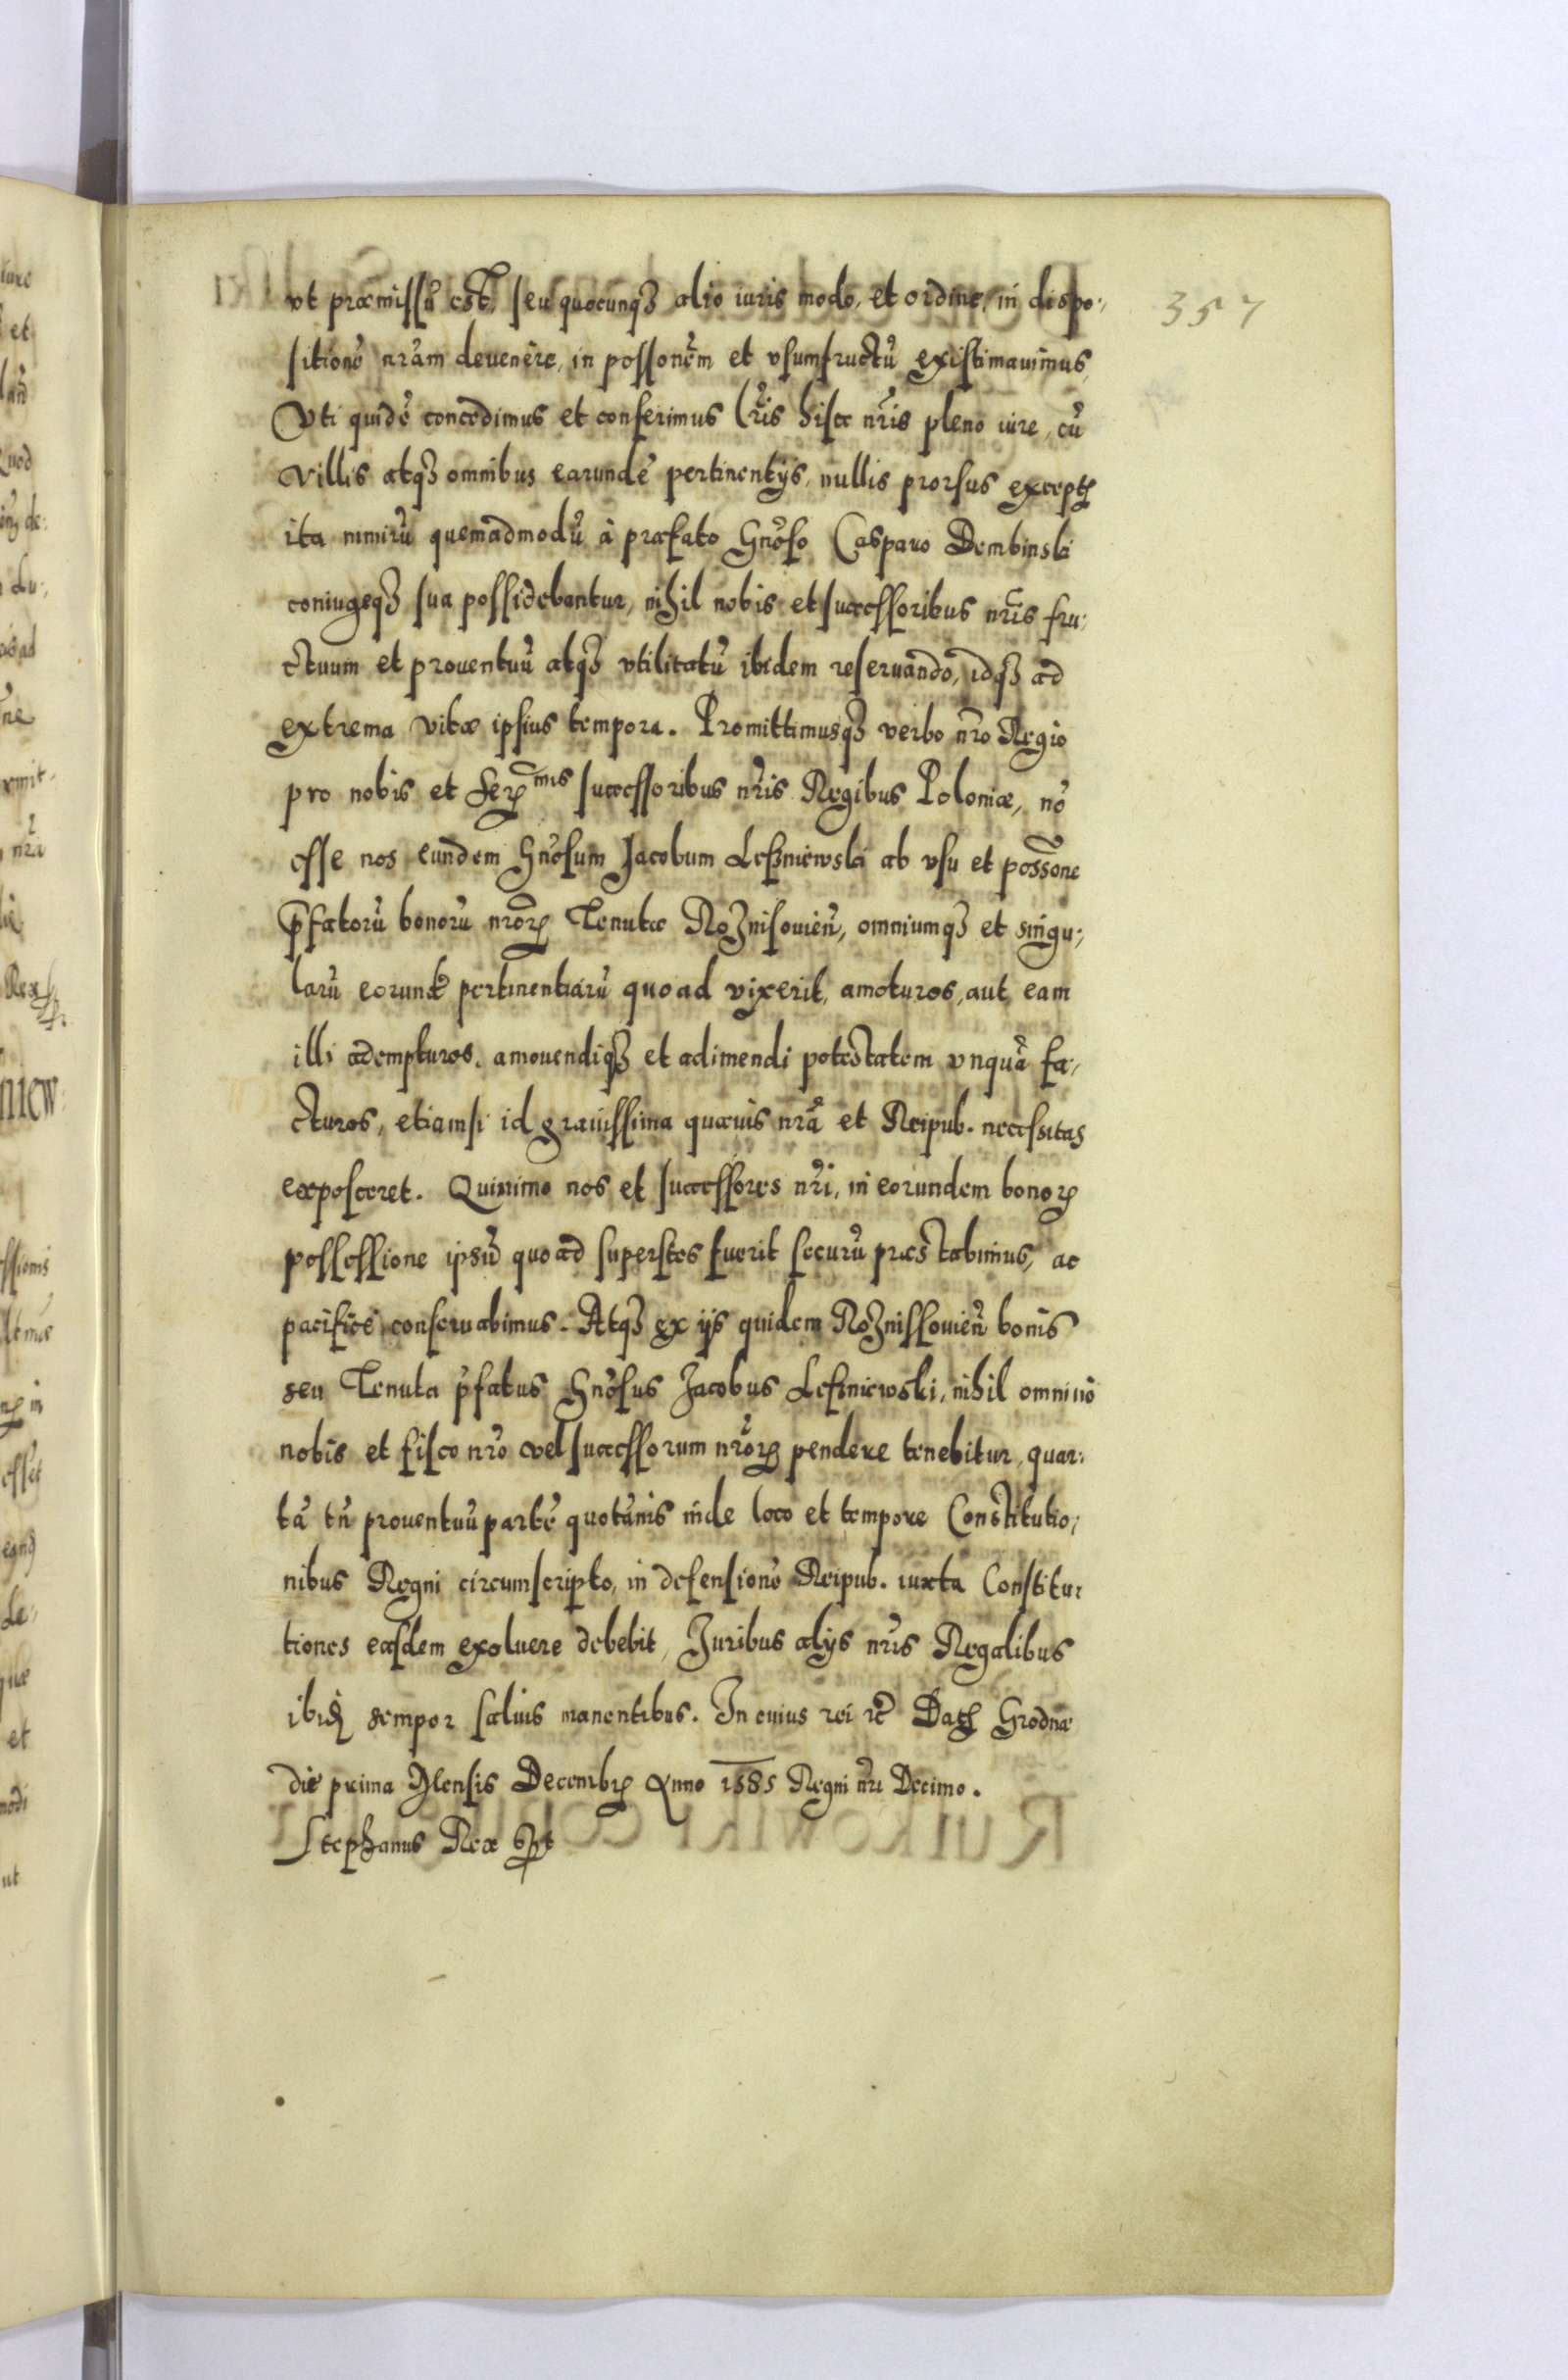 vt præmissũ est, seu quocunqꝫ alio iuris modo, et ordine, in dispo:
357
sitionẽ nr̃am deuenêre, in posson̄em et vsumfructũ existimauimus,
Vti quidẽ concedimus et conferimus lr̃is hisce nr̃is pleno iure, cũ
villis atqꝫ omnibus earundẽ pertinentijs, nullis prorsus exceptꝭ
ita nimirũ quemadmodũ à præfato Gnoso Casparo Dembinski
coniugeqꝫ sua possidebantur, nihil nobis et successoribus nr̃is fru:
ctuum et prouentuũ atqꝫ vtilitatũ ibidem reseruando, idqꝫ ad
extrema vitæ ipsius tempora. Promittimusqꝫ verbo nr̃o Regio
pro nobis et Serꝫmis successoribus nr̃is Regibus Poloniæ, nõ
esse nos eundem Gnosum Jacobum Leßniewski ab vsu et possõne
p̃fatorũ bonorũ nr̃orꝫ Tenutæ Roznisouieñ, omniumqꝫ et singu:
larũ eorund̃ pertinentiarũ quoad vixerit, amoturos, aut eam
illi adempturos. amouendiqꝫ et adimendi potestatem vnquã fa:
cturos, etiamsi id grauissima quæuis nr̃a et Reipub. necessitas
exposceret. Quinimo nos et successores nr̃i, in eorundem bonorꝫ
possessione ipsũ quoad superstes fuerit securũ præstabimus, ac
pacificè conseruabimus. Atqꝫ ex ijs quidem Roznissouieñ bonis
seu Tenuta p̃fatus Gnosus Jacobus Leßniewski, nihil omnino
nobis et fisco nr̃o vel successorum nr̃orꝫ pendere tenebitur, quar:
tã tñ prouentuũ partẽ quotãnis inde loco et tempore Constitutio:
nibus Regni circumscripto, in defensionẽ Reipub. iuxta Constitu:
tiones easdem exoluere debebit, Juribus alijs nr̃is Regalibus
ibidꝫ semper saluis manentibus. In cuius rei rc̃ Datꝭ Grodnæ
die prima Mensis Decembrꝭ Anno 1585 Regni nr̃i Decimo.
Stephanus Rex sspt